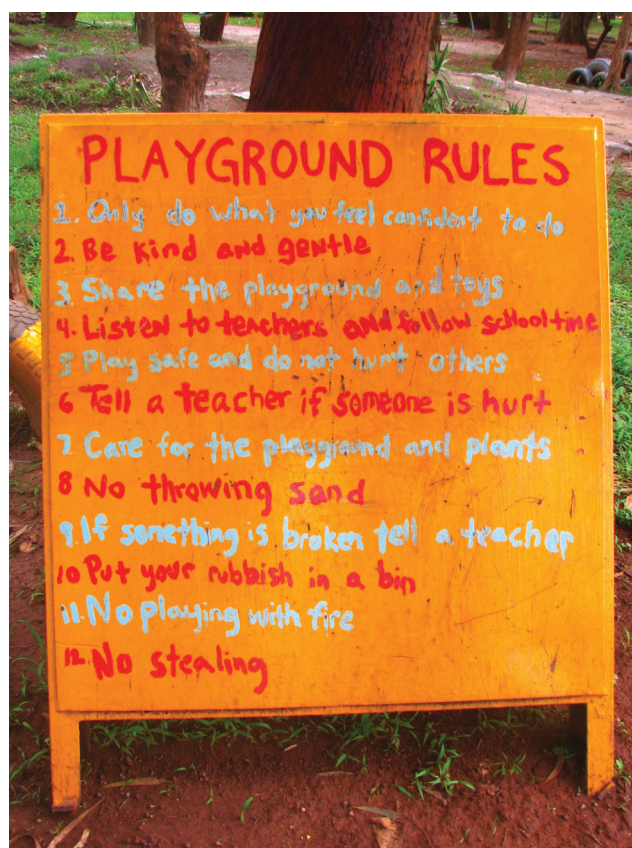 PLAYGROUND RULES
1. Only do what you feel confident to do
2. Be kind and gentle
3. Share the playground and toys
4. Listen to teachers and follow schooltime
5 Play safe and do not hurt others
6 Tell a teacher if someone is hurt
7 Care for the playground and plants
8 No throwing sand
9. If something is broken tell a teacher
10 Put your rubbish in a bin
11. No playing with fire
12. No stealing